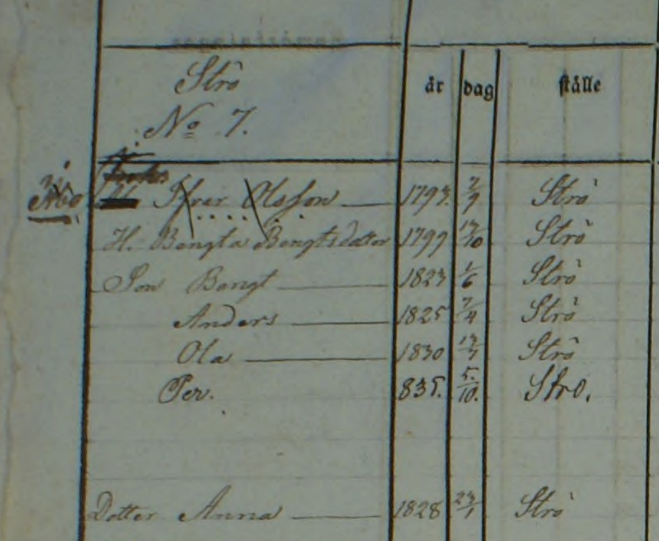 Strö
år dag ställe
No 7.
Åbo
Ifvar Olsson 1793 2/9 Strö
H. Bengta Bengtsdotter 1799 /10 Strö
Son Bengt 1823 1/6 Strö
Anders 1825 7/4 Strö
Ola 1830 Strö
Per. 835. 5/10. Strö.
Dotter Anna 1828 23/1 Strö